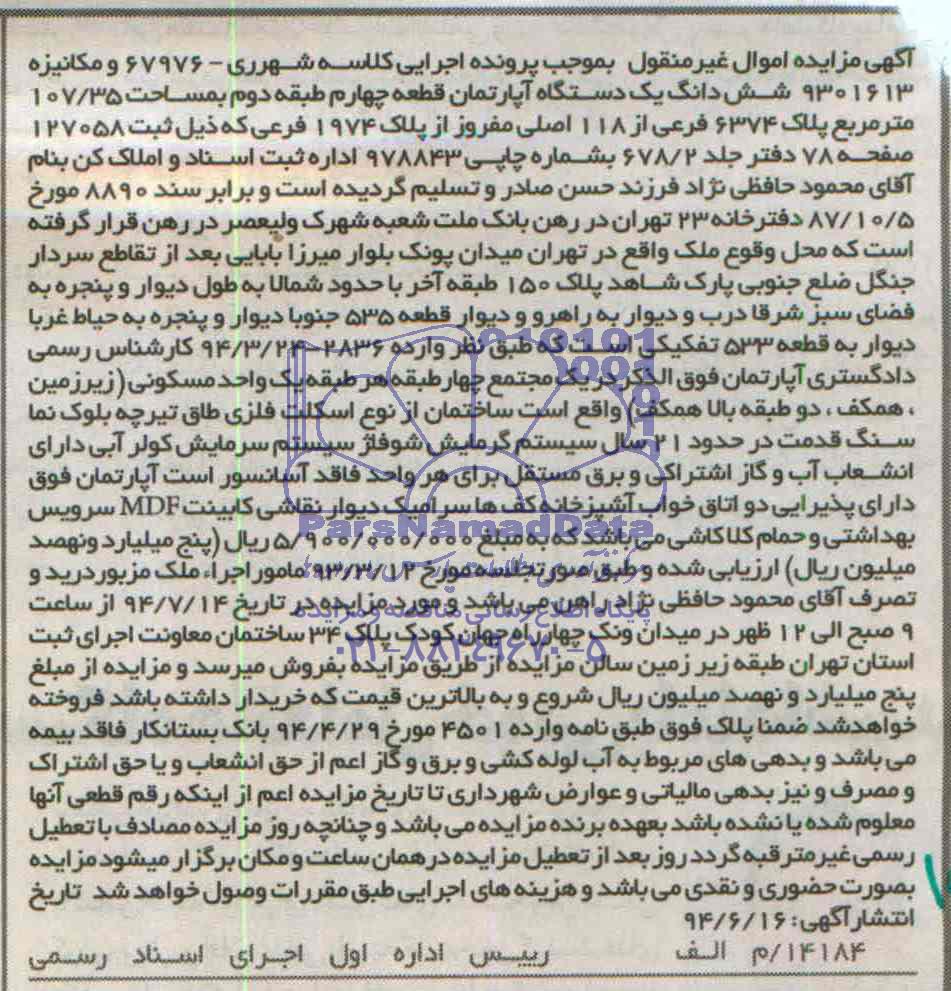 آگهی مزایده اموال غیرمنقول بموجب پرونده اجرایی کلاسه شهرری - ۶۷۹۷۶ و مکانیزه
۹۳۰۱۶۱۳ شش دانگ یک دستگاه آپارتمان قطعه چهارم طبقه دوم بمساحت ۱۰۷/۳۵
مترمربع پلاک ۶۳۷۴ فرعی از ۱۱۸ اصلی مفروز از پلاک ۱۹۷۴ فرعی که ذیل ثبت ۱۲۷۰۵۸
صفحه ۷۸ دفتر جلد ۶۷۸/۲ بشماره چاپی ۹۷۸۸۴۳ اداره ثبت اسناد و املاک کن بنام
آقای محمود حافظی نژاد فرزند حسن صادر و تسلیم گردیده است و برابر سند ۸۸۹۰ مورخ
۸۷/۱۰/۵ دفترخانه ۲۳ تهران در رهن بانک ملت شعبه شهرک ولیعصر در رهن قرار گرفته
است که محل وقوع ملک واقع در تهران میدان پونک بلوار میرزا بابایی بعد از تقاطع سردار
جنگل ضلع جنوبی پارک شاهد پلاک ۱۵۰ طبقه آخر با حدود شمالا به طول دیوار و پنجره به
فضای سبز شرقا درب و دیوار به راهرو و دیوار قطعه ۵۳۵ جنوبا دیوار و پنجره به حیاط غربا
دیوار به قطعه ۵۳۳ تفکیکی است که طبق نظر وارده ۲۸۳۶-۹۴/۳/۲۴ کارشناس رسمی
دادگستری آپارتمان فوق الذکر در یک مجتمع چهار طبقه هر طبقه یک واحد مسکونی (زیرزمین
، همکف ، دو طبقه بالا همکف) واقع است ساختمان از نوع اسکلت فلزی طاق تیرچه بلوک نما
سنگ قدمت در حدود ۲۱ سال سیستم گرمایش شوفاژ سیستم سرمایش کولر آبی دارای
انشعاب آب و گاز اشتراکی و برق مستقل برای هر واحد فاقد آسانسور است آپارتمان فوق
دارای پذیرایی دو اتاق خواب آشپزخانه کف ها سرامیک دیوار نقاشی کابینت MDF سرویس
بهداشتی و حمام کلا کاشی می باشد که به مبلغ ۵/۹۰۰/۰۰۰/۰۰۰ ریال (پنج میلیارد ونهصد
میلیون ریال) ارزیابی شده و طبق صورتجلسه مورخ ۹۳/۳/۱۲ مامور اجراء ملک مزبور درید و
تصرف آقای محمود حافظی نژاد راهن می باشد و مورد مزایده در تاریخ ۹۴/۷/۱۴ از ساعت
۹ صبح الی ۱۲ ظهر در میدان ونک چهارراه جهان کودک پلاک ۳۴ ساختمان معاونت اجرای ثبت
استان تهران طبقه زیر زمین سالن مزایده از طریق مزایده بفروش میرسد و مزایده از مبلغ
پنج میلیارد و نهصد میلیون ریال شروع و به بالاترین قیمت که خریدار داشته باشد فروخته
خواهدشد ضمنا پلاک فوق طبق نامه وارده ۴۵۰۱ مورخ ۹۴/۴/۲۹ بانک بستانکار فاقد بیمه
می باشد و بدهی های مربوط به آب لوله کشی و برق و گاز اعم از حق انشعاب و یا حق اشتراک
و مصرف و نیز بدهی مالیاتی و عوارض شهرداری تا تاریخ مزایده اعم از اینکه رقم قطعی آنها
معلوم شده یا نشده باشد بعهده برنده مزایده می باشد و چنانچه روز مزایده مصادف با تعطیل
رسمی غیرمترقبه گردد روز بعد از تعطیل مزایده درهمان ساعت و مکان برگزار میشود مزایده
بصورت حضوری و نقدی می باشد و هزینه های اجرایی طبق مقررات وصول خواهد شد تاریخ
انتشارآگهی: ۹۴/۶/۱۶
۱۴۱۸۴/م الف رییس اداره اول اجرای اسناد رسمی
ParsNamadData
پایگاه اطلاع رسانی مناقصه و مزایده
۰۲۱-۸۸۳۴۹۶۷۰-۵